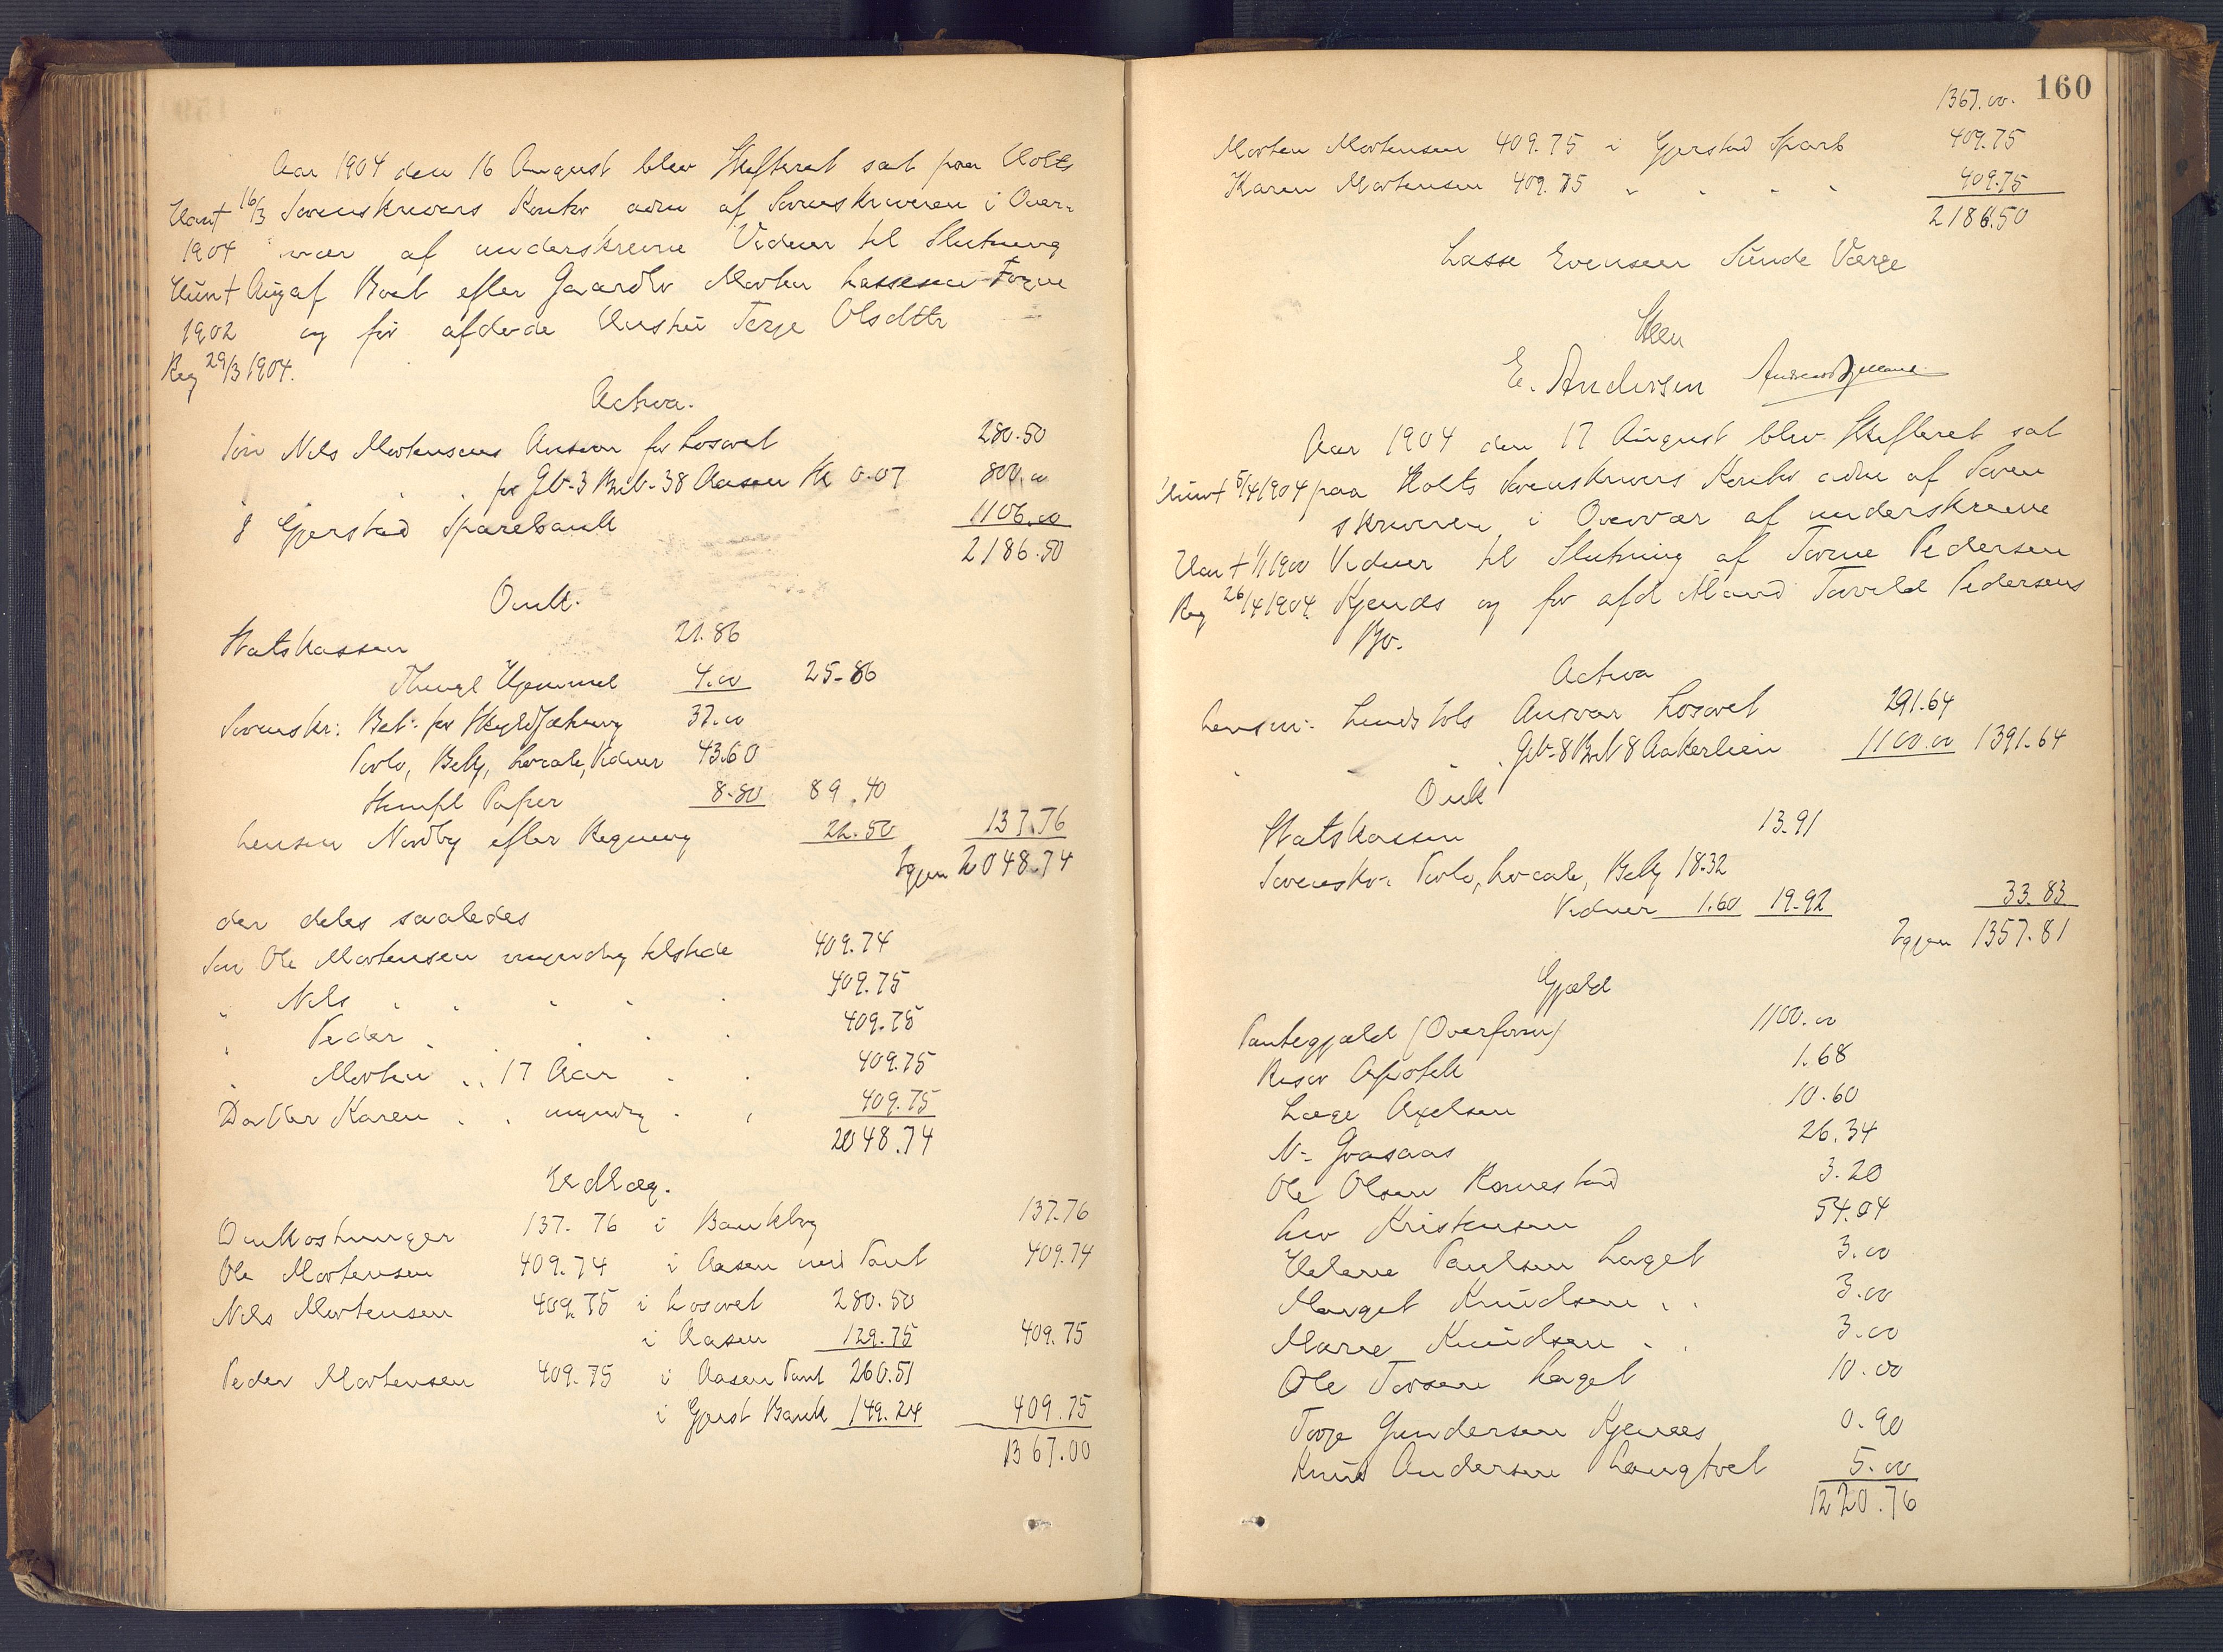 Aar 1904 den 16 August blev Skifteret sat paa Holts
Han † 16/3 Sorenskrivers Kontor adm af Sorenskriveren i Over-
1904 vær af underskrevne Vidner til Slutning
Hun † Aug af Boet efter Gaardbr Morten Lassesen Fogne
1902 og før afdøde Hustru Terje Olsdttr
Reg 29/3 1904.
Activa.
Søn Nils Mortensens Ansvar for Løsøret 280.50
" " " for Gb-3 Bnb-38 Aasen Sk 0.07 800.00
I Gjerstad Sparebank 1106.00
2186.50
Omk.
Statskassen 21.86
Thingl Hjemmel 4.00 25-86
Sorenskr: Bet. for Skyldsætning 37.00
Porto, Bekj, Locale, Vidner 43.60
Stempl Papir 8.80 89.40
Lensm Nordby efter Regning 22.50 137.76
Igjen 2048.74
der deles saaledes
Søn Ole Mortensen myndig tilstede 409.74
" Nils " " " " 409.75
" Peder " " " " 409.75
" Morten " " 17 Aar " " 409.75
Datter Karen " " myndig " " 409.75
2048.74
Udlæg.
Omkostninger 137.76 i Bankbog 137.76
Ole Mortensen 409.74 i Aasen med Pant 409.74
Nils Mortensen 409.75 i Løsøret 280.50
i Aasen 129.75 409.75
Peder Mortensen 409.75 i Aasen Pant 260.51
i Gjerst Bank 149.24 409.75
1367.00
160
1367.00.
Morten Mortensen 409.75 i Gjerstad Sparb 409.75
Karen Mortensen 409.75 " " " " 409.75
2186.50
Lasse Evensen Sunde Værge
E. Andersen
Aar 1904 den 17 August blev Skifteret sat
Hun † 5/4 1904 paa Holts Sorenskrivers Kontor adm af Soren
skriveren i Overvær af underskrevne
Han † 1/1 1900 Vidner til Slutning af Torne Pedersen
Reg 26/4 1904. Kjenås og før afd Mand Tarald Pedersens
Bo.
Activa
Lensm: Lundstols Ansvar Løsøret 291.64
" " " Gb-8 Bnb 8 Aakerlien 1100.00 1391.64
Omk
Statskassen 13.91
Sorenskr: Porto, Locale, Bekj 18.32
Vidner 1.60 19.92 33.83
Igjen 1357.81
Gjæld
Pantegjæld (Overform) 1100.00
Risør Apothek 1.68
Læge Axelsen 10.60
N. Graasaas 26.34
Ole Olsen Rønnestad 3.20
Kristensen 54.04
Helene Paulsen Laget 3.00
Marget Knudsen " " 3.00
Marie Knudsen " " 3.00
Ole Torsen Laget 10.00
Torje Gundersen Kjenaes 0.90
Knud Andersen Langtvet 5.00
1220.76